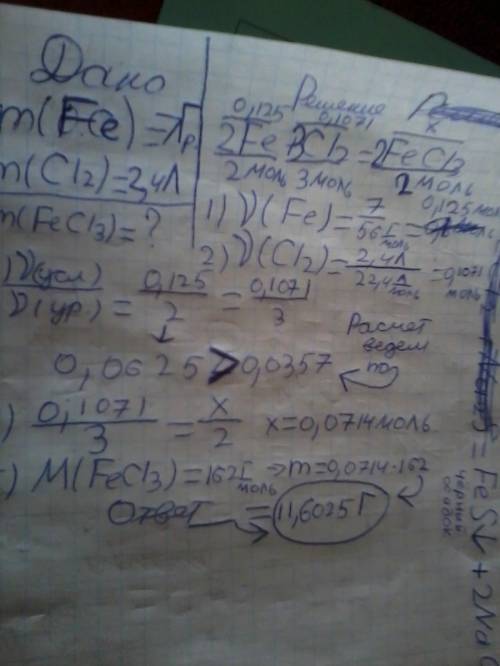 Дано
m(Fe)=7гр
m(Cl2)=2,4л
m(FeCl3)=?
Решение
0,125 0,1071 x
2Fe 3Cl2 = 2FeCl3
2 моль 3 моль 2 моль
1) ν(Fe)= 7 / 56 г/моль = 0,125 моль
2) ν(Cl2)= 2,4л / 22,4 л/моль = 0,1071 моль
) ν(усл) / ν(ур) = 0,125 / 2 = 0,1071 / 3
0,0625 > 0,0357
Расчет
ведем
по
) 0,1071 / 3 = x / 2 x=0,0714 моль
) M(FeCl3)=162 г/моль ⇒ m=0,0714·162
Ответ = 11,6025 г
= FeS↓ + 2Na
черный
осадок